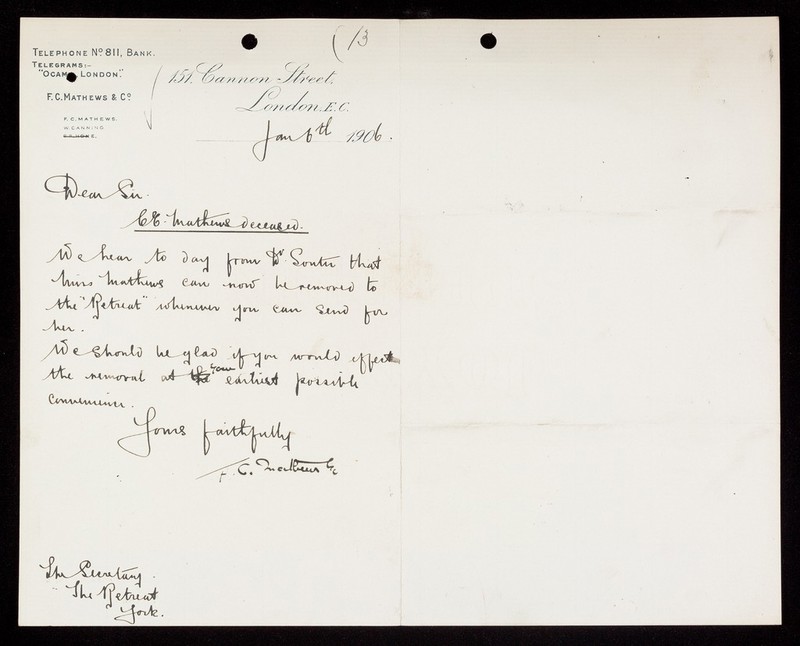 (13
TELEPHONE No 811, BANK.
TELEGRAMS:-
LONDON."
F.C. MATHEWS & Co
F. C. MATHEWS.
W. CANNING
151, Cannon Street,
London, E.C.
Jan 6th 1906.
Dear Sir.
C E. Mathews deceased.
We hear to day from Dr Souter that
Miss Mathews can now be removed to
the "Retreat" whenever you can send for
her.
We should be glad if you would effect
your
the removal at the earliest possible
convenience.
Yours faithfully
F. C. Mathews & Co
The Secretary.
The Retreat
York.